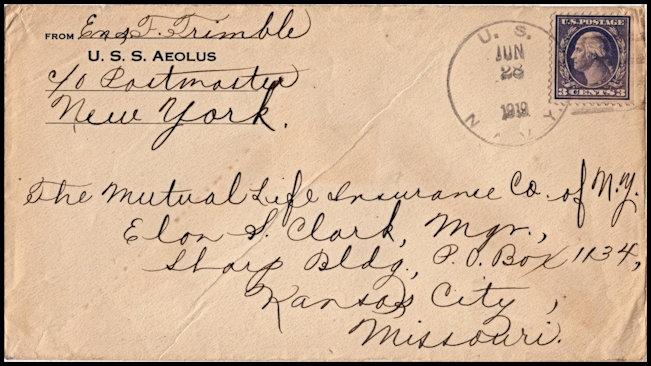 FROM Ens. F. Trimble
U. S. S. AEOLUS
c/o Postmaster
New York.
U. S.
JUN
28
1919
NAVY
U.S. POSTAGE
3 CENTS 3
The Mutual Life Insurance Co. of N.Y.
Elon S. Clark, Mgr.,
Sharp Bldg., P.O. Box 1134,
Kansas City,
Missouri.